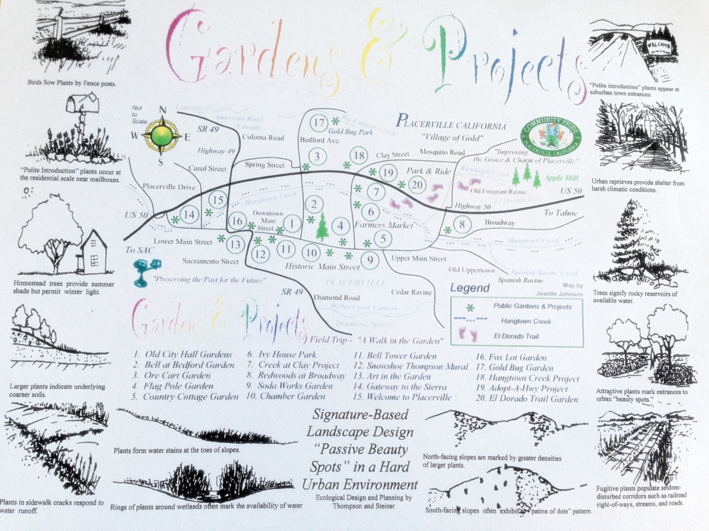 Gardens & Projects
Birds Sow Plants by Fence posts.
"Polite introduction" plants appear at
suburban town entrances.
WELCOME
Not
to
Scale
W
E
SR 49
Coloma Road
Highway 49
Canal Street
Spring Street
17
Gold Bug Park
Bedford Ave.
3
PLACERVILLE CALIFORNIA
"Village of Gold"
18
Clay Street
Mosquito Road
COMMUNITY PRIDE
"Improving
the Grace & Charm of Placerville"
19
Park & Ride
20
Apple Hill
Old Emigrant Ravine
US 50
"Polite Introduction" plants occur at
the residential scale near mailboxes.
Urban reprieves provide shelter from
harsh climatic conditions.
Placerville Drive
US 50
14
15
16
Downtown
Main Street
1
2
4
7
6
Farmers Market
5
Highway 50
8
Broadway
To Tahoe
Hangtown Creek
Lower Main Street
13
12
11
10
9
Upper Main Street
To SAC
Sacramento Street
Historic Main Street
Old Uppertown
Spanish Ravine
"Preserving the Past for the Future"
PLACERVILLE
SR 49
Diamond Road
Cedar Ravine
Legend
Map by
Josette Johnson
Public Gardens & Projects
Hangtown Creek
El Dorado Trail
Homestead trees provide summer
shade but permit winter light.
Trees signify rocky reservoirs of
available water.
Gardens & Projects
Field Trip - "A Walk in the Garden"
1. Old City Hall Gardens
2. Bell at Bedford Garden
3. Ore Cart Garden
4. Flag Pole Garden
5. Country Cottage Garden
6. Ivy House Park
7. Creek at Clay Project
8. Redwoods at Broadway
9. Soda Works Garden
10. Chamber Garden
11. Bell Tower Garden
12. Snowshoe Thompson Mural
13. Art in the Garden
14. Gateway to the Sierra
15. Welcome to Placerville
16. Fox Lot Garden
17. Gold Bug Garden
18. Hangtown Creek Project
19. Adopt-A-Hwy Project
20. El Dorado Trail Garden
Larger plants indicate underlying
coarser soils.
Attractive plants mark entrances to
urban "beauty spots."
Signature-Based
Landscape Design
"Passive Beauty
Spots" in a Hard
Urban Environment
Ecological Design and Planning by
Thompson and Steiner
Plants form water stains at the toes of slopes.
North-facing slopes are marked by greater densities
of larger plants.
Plants in sidewalk cracks respond to
water runoff.
Rings of plants around wetlands often mark the availability of water
South-facing slopes often exhibit a "patina of dots" pattern.
Fugitive plants populate seldom-
disturbed corridors such as railroad
right-of-ways, streams, and roads.